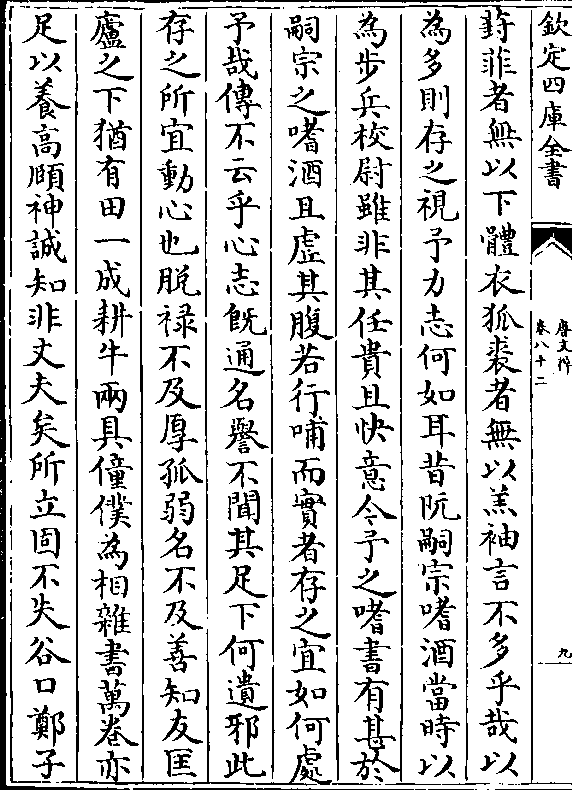 欽定四庫全書
唐文粹
卷八十二
九
葑菲者無以下體衣狐裘者無以羔袖言不多乎哉以
為多則存之視予力志何如耳昔阮嗣宗嗜酒當時以
為步兵校尉雖非其任貴且快意令予之嗜書有甚於
嗣宗之嗜酒且虛其腹若行哺而實者存之宜如何處
予哉傳不云乎心志既通名譽不聞其足下何遺邪此
存之所宜動心也脱祿不及厚孤弱名不及善知友匡
廬之下猶有田一成耕牛兩具僮僕為相雜書萬卷亦
足以養高頤神誠知非丈夫矣所立固不失谷口鄭子